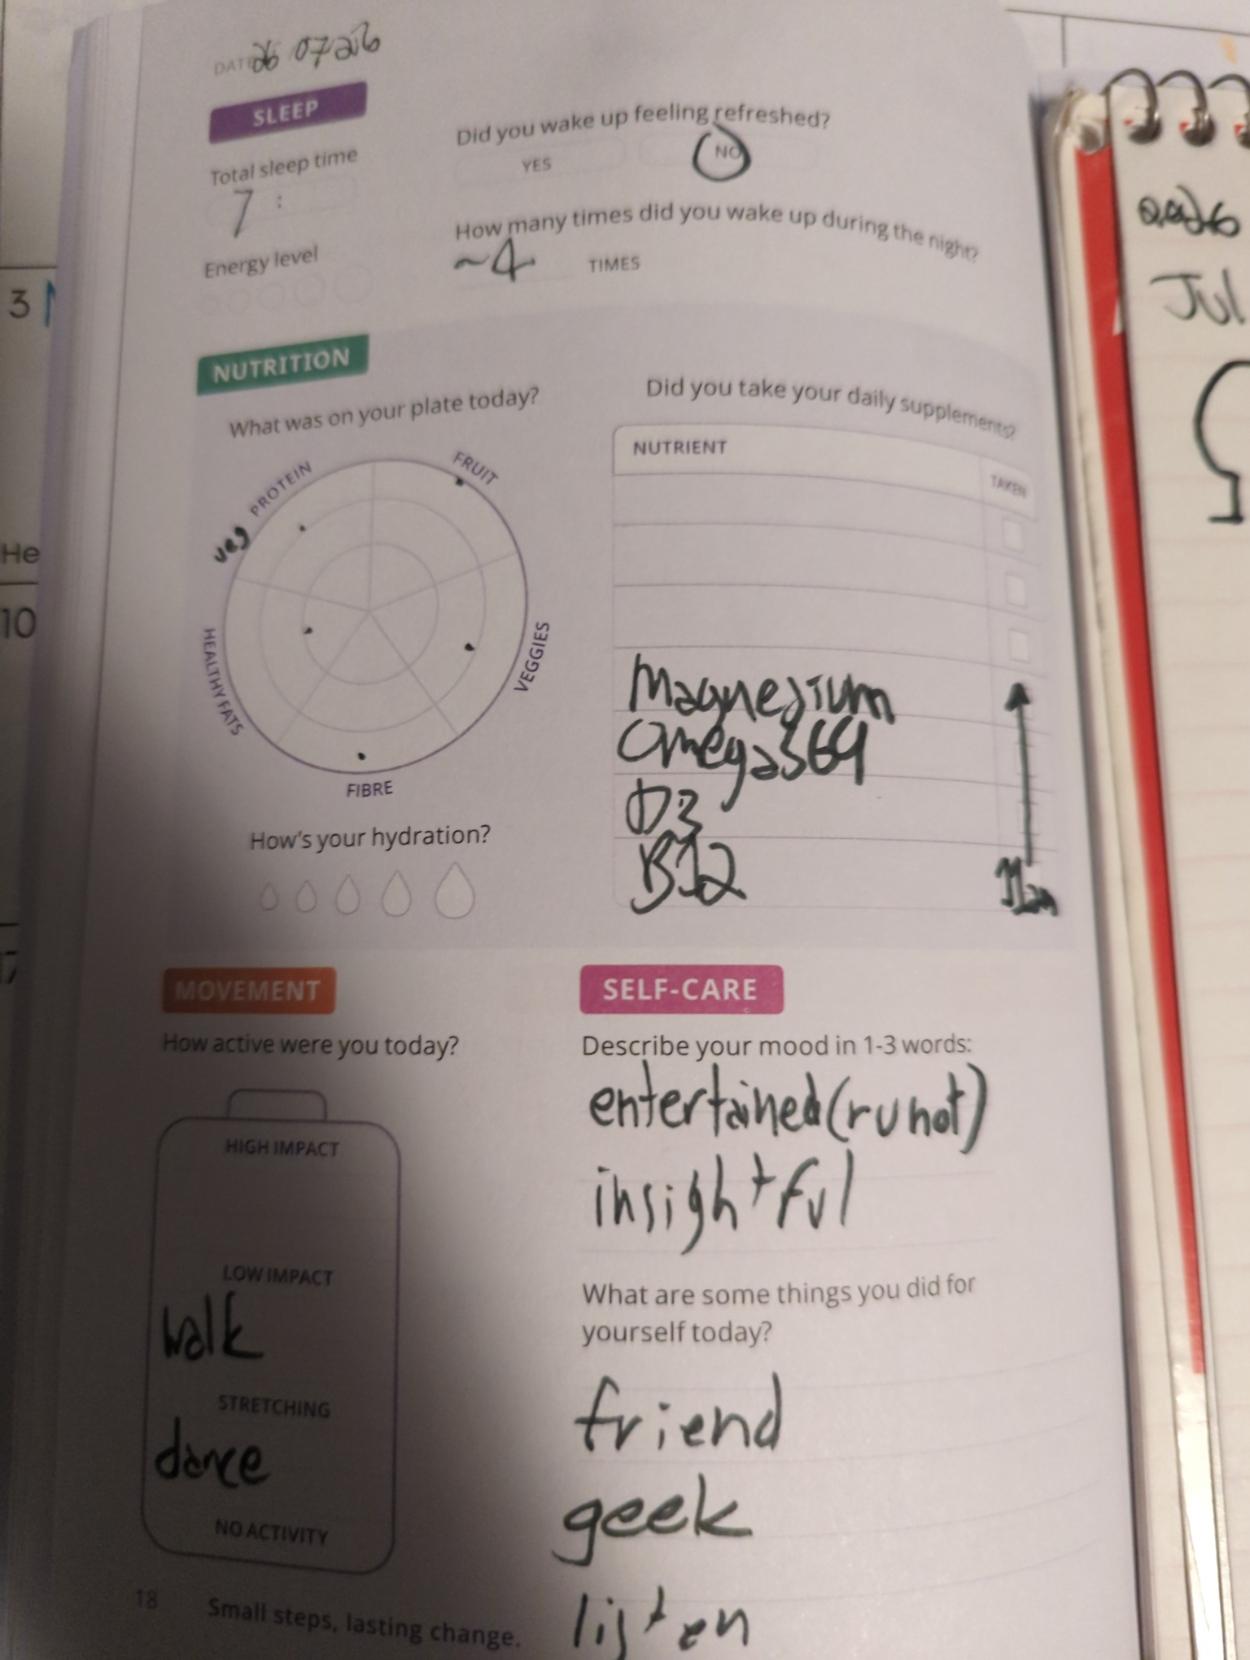 DATE 26 07 26
SLEEP
Total sleep time
7 :
Energy level
Did you wake up feeling refreshed?
YES NO
How many times did you wake up during the night?
~4 TIMES
NUTRITION
What was on your plate today?
veg PROTEIN
FRUIT
VEGGIES
FIBRE
HEALTHY FATS
How's your hydration?
Did you take your daily supplements?
NUTRIENT TAKEN
Magnesium
Omega369
D3
B12
11am
MOVEMENT
How active were you today?
HIGH IMPACT
LOW IMPACT
walk
STRETCHING
dance
NO ACTIVITY
SELF-CARE
Describe your mood in 1-3 words:
entertained (r u not)
insightful
What are some things you did for
yourself today?
friend
geek
listen
18 Small steps, lasting change.
3
He
10
17
Jul